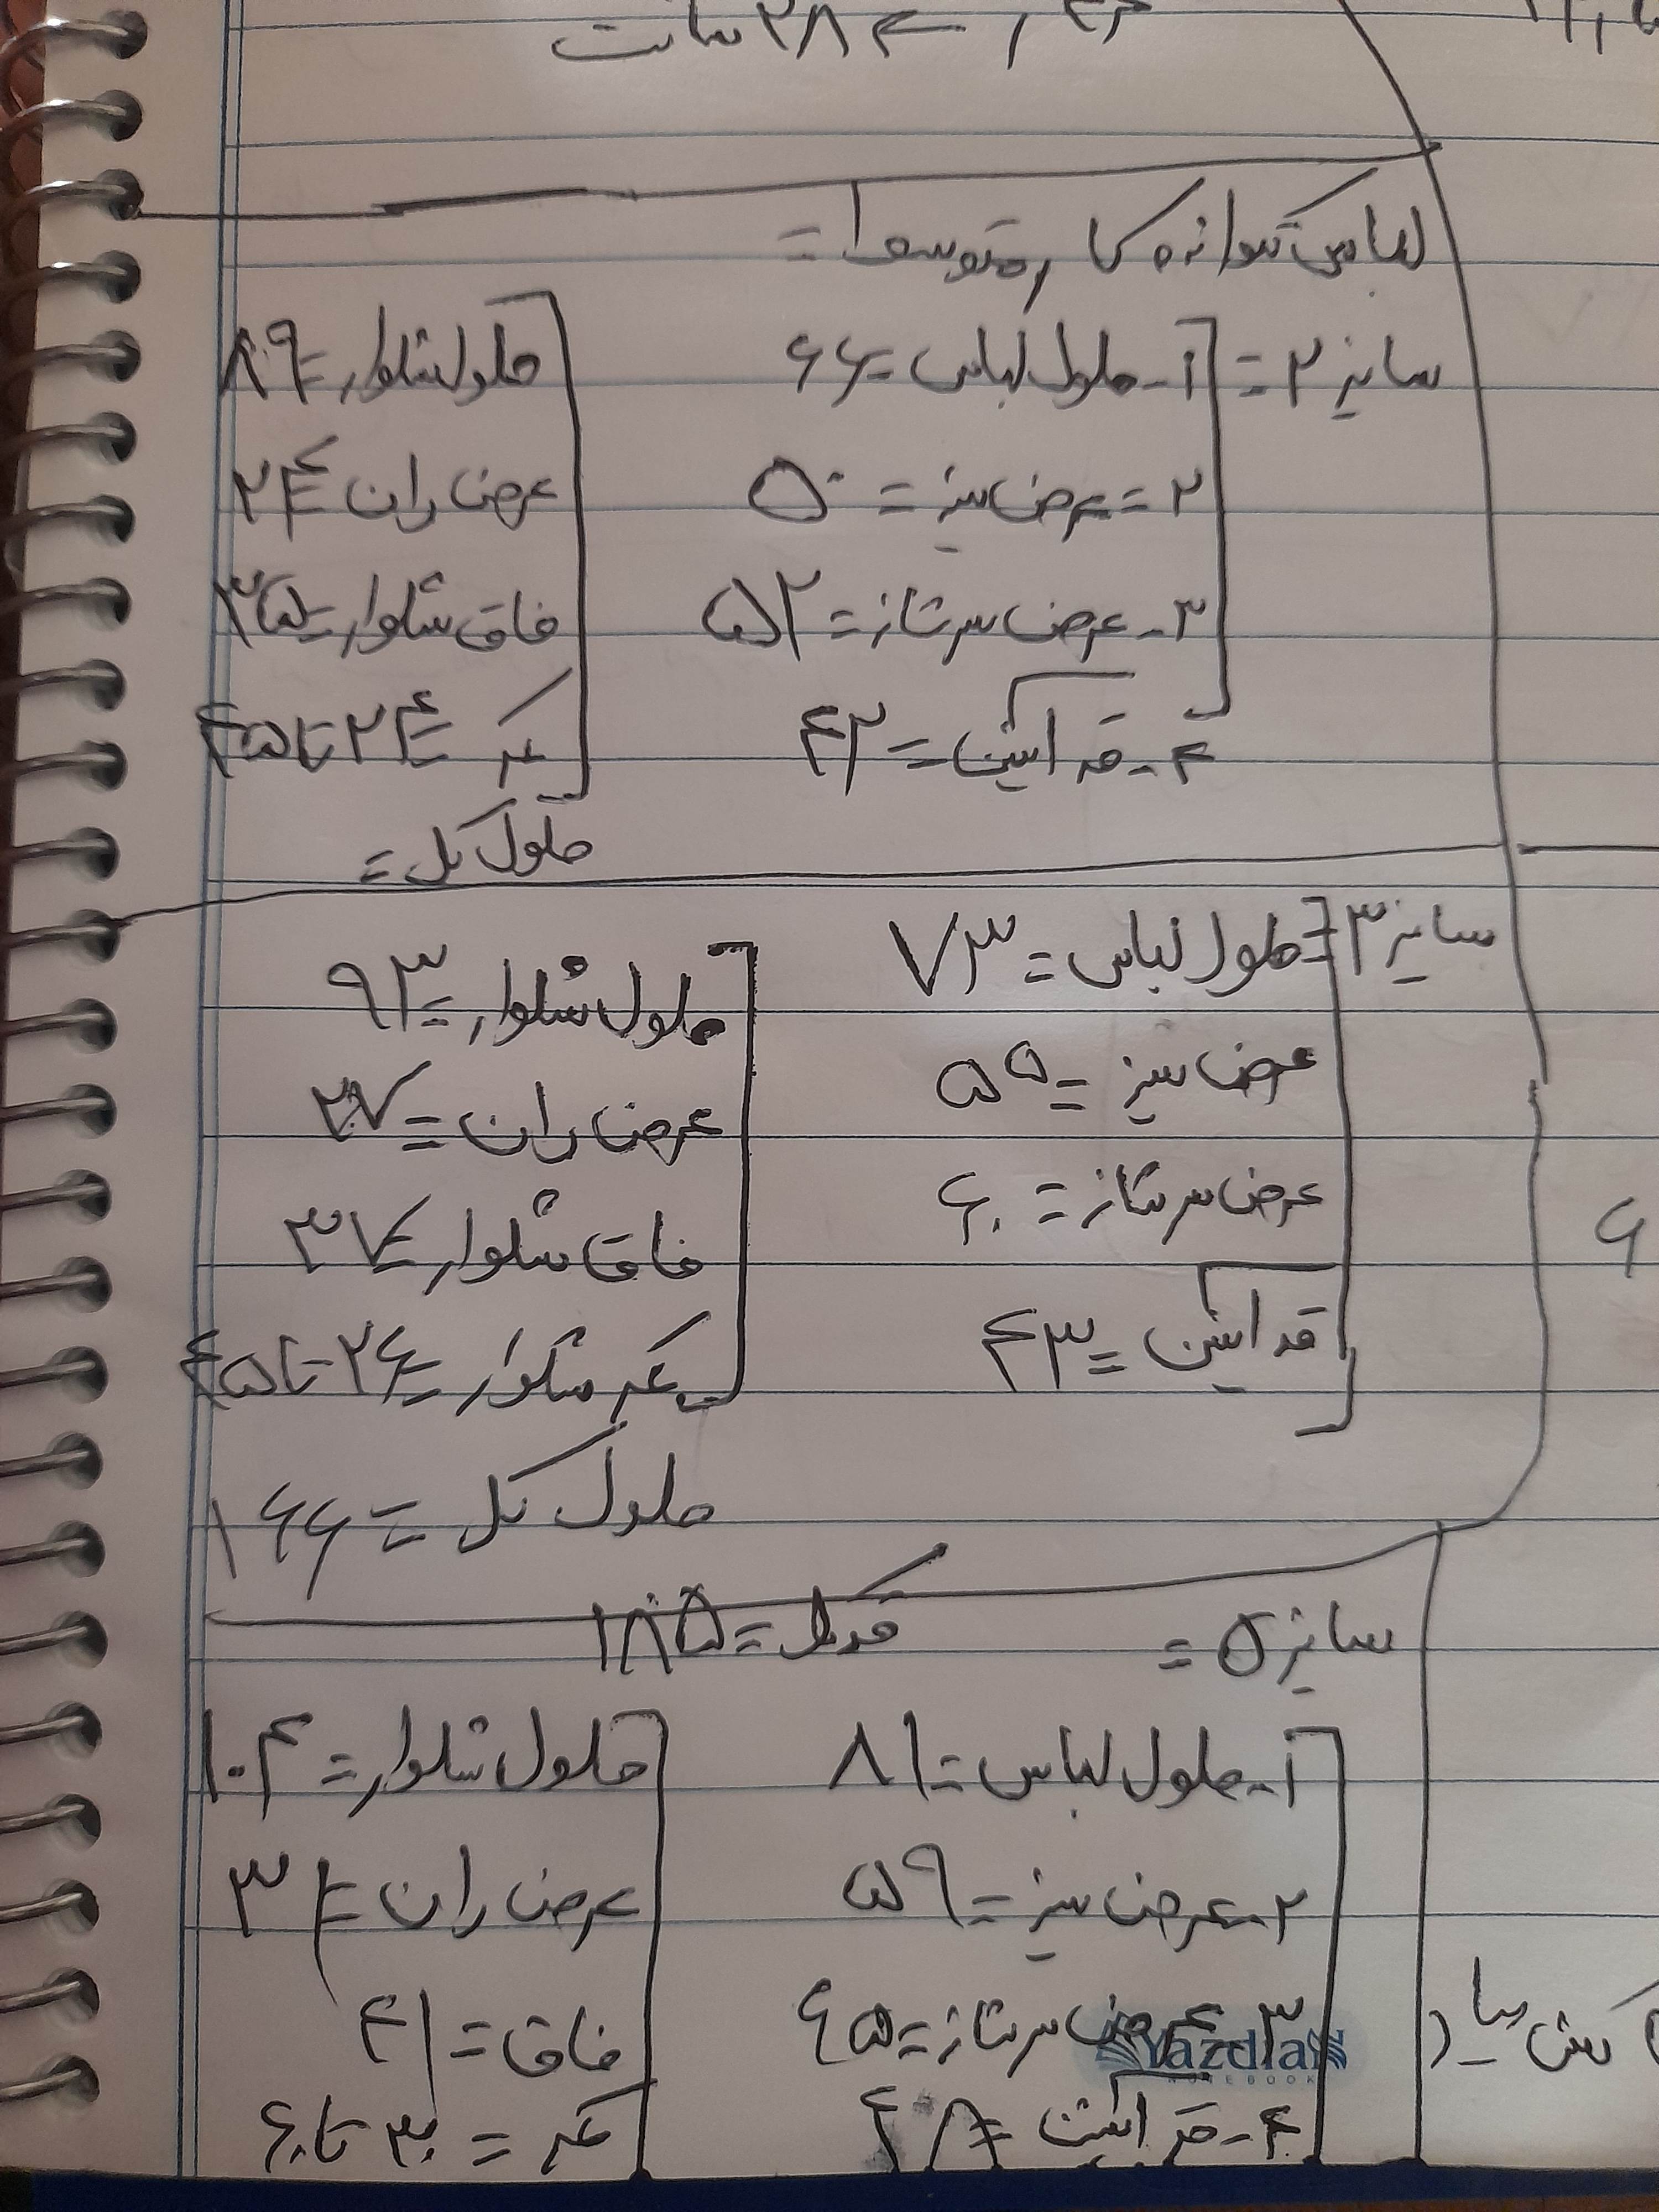 ۲۸ سانت
لباس تکواندو کا رمتوسط =
سایز ۲ =
۱- طول لباس = ۶۶
۲ = عرض سینه = ۵۰
۳- عرض سرشانه = ۵۲
۴- قد آستین = ۴۳
طول شلوار = ۸۹
عرض ران = ۲۴
فاق شلوار = ۳۵
کمر = ۲۴ تا ۴۵
طول کل =
سایز ۳ =
طول لباس = ۷۳
عرض سینه = ۵۵
عرض سرشانه = ۶۰
قد آستین = ۴۳
طول شلوار = ۹۳
عرض ران = ۲۷
فاق شلوار = ۳۷
کمر شلوار = ۲۶ تا ۴۵
طول کل = ۱۶۶
سایز ۵ =
قد کل = ۱۸۵
۱- طول لباس = ۸۱
۲- عرض سینه = ۵۹
۳- عرض سرشانه = ۶۵
۴- قد آستین = ۴۸
طول شلوار = ۱۰۴
عرض ران = ۳۱
فاق = ۴۱
کمر = ۳۰ تا ۶۰
۶
Yazdla
NOTEBOOK